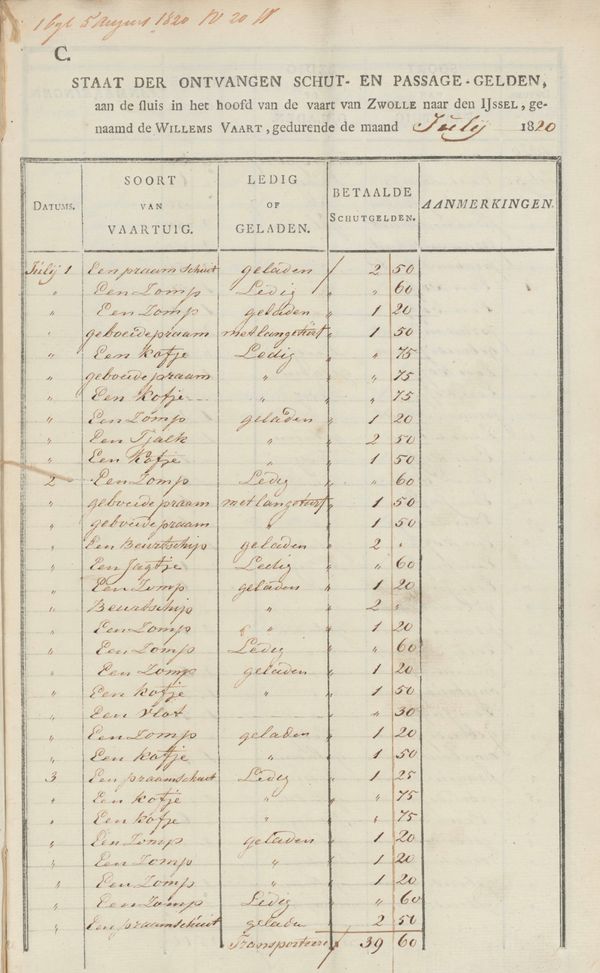 1 byl 5 August 1820 N 20
C.
STAAT DER ONTVANGEN SCHUT- EN PASSAGE-GELDEN,
aan de sluis in het hoofd van de vaart van ZWOLLE naar den IJSSEL, ge-
naamd de WILLEMS VAART, gedurende de maand Julij 1820
DATUMS. SOORT VAN VAARTUIG. LEDIG OF GELADEN. BETAALDE SCHUTGELDEN. AANMERKINGEN.
Julij 1 Een praam schuit geladen ƒ 2 50
" Een Zomp Ledig " " 60
" Een Zomp geladen " 1 20
" geboeide praam met lange turf " 1 50
" Een Kofje Ledig " " 75
" geboeide praam " " " 75
" Een Kofje " " " 75
" Een Zomp geladen " 1 20
" Een Tjalk " " 2 50
" Een Kofje " " 1 50
2 Een Zomp Ledig " " 60
" geboeide praam met lange turf " 1 50
" geboeide praam " " 1 50
" Een Beurtschip geladen " 2 "
" Een Jagtje Ledig " " 60
" Een Zomp geladen " 1 20
" Beurtschip " " 2 "
" Een Zomp " " " 1 20
" Een Zomp Ledig " " 60
" Een Zomp geladen " 1 20
" Een Kofje " " 1 50
" Een Vlot " " 30
" Een Zomp geladen " 1 20
" Een Kofje " " 1 50
3 Een praamschuit Ledig " 1 25
" Een Kofje " " " 75
" Een Kofje " " " 75
" Een Zomp geladen " 1 20
" Een Zomp " " 1 20
" Een Zomp " " 1 20
" Een Zomp Ledig " " 60
" Een praamschuit geladen " 2 50
Transporteere ƒ 39 60